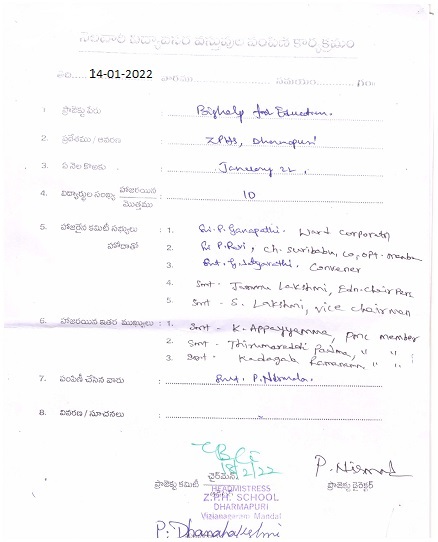 నెలవారీ విద్యావసర వస్తువుల పంపిణీ కార్యక్రమం
తేది. 14-01-2022 వారము సమయం గం॥
1. ప్రాజెక్టు పేరు : Bighelp for Education.
2. ప్రదేశము / ఆవరణ : ZPHS, Dharmapuri
3. ఏ నెల కొఱకు : January 22.
4. విద్యార్థుల సంఖ్య హాజరయిన / మొత్తము : 10
5. హాజరైన కమిటీ సభ్యులు : 1. Sri. P. Ganapathi. Ward Corporator
హోదాతో 2. Sri P. Ravi, Ch. Suribabu, Co, opt. member
3. Smt. Convener
4. Smt - Lakshmi, Edn. Chair Pers
5. Smt - S. Lakshmi, vice chairman
6. హాజరయిన ఇతర ముఖ్యులు : 1. Smt - K. Appayyamma, pmc member
2. Smt - Padma, " " :
3. Smt - Ramanamma " "
7. పంపిణీ చేసిన వారు : Smt. P. Nirmala.
8. వివరణ / సూచనలు : -
18/2/22
ప్రాజెక్టు కమిటీ ఛైర్మన్
P. Nirmala
ప్రాజెక్టు డైరెక్టర్
HEADMISTRESS
Z.P.H. SCHOOL
DHARMAPURI
Vizianagaram Mandal
P. Dhanalakshmi